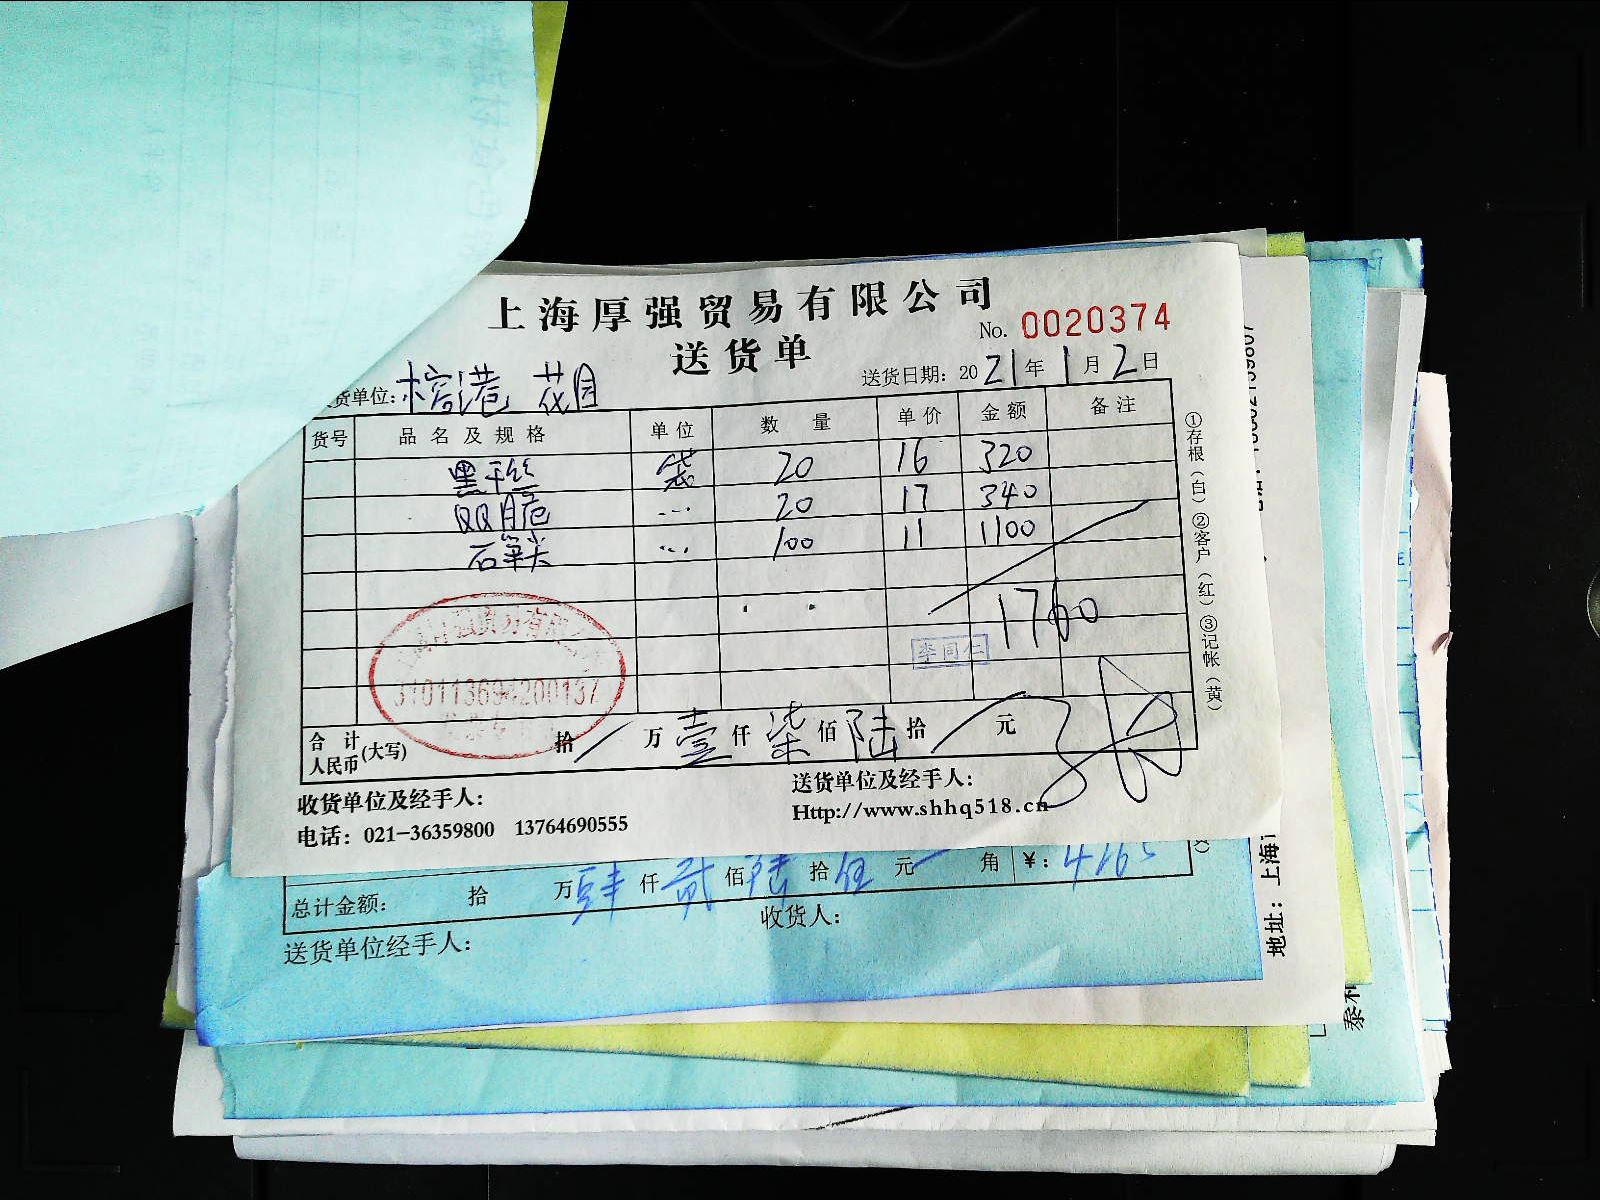 上海厚强贸易有限公司
No. 0020374
送货单
货单位: 榕港 花园
送货日期: 2021年1月2日
货号 品名及规格 单位 数量 单价 金额 备注
黑干丝 袋 20 16 320
双脆 … 20 17 340
石笋尖 … 100 11 1100
1760
李同仁
310113694200137
合计人民币(大写) 拾/万壹仟柒佰陆拾/元
收货单位及经手人:
送货单位及经手人:
电话: 021-36359800 13764690555
Http://www.shhq518.cn
①存根(白)②客户(红)③记帐(黄)
总计金额: 拾 万肆仟贰佰陆拾伍元 角 ¥: 4265
送货单位经手人:
收货人:
地址: 上海
泰和